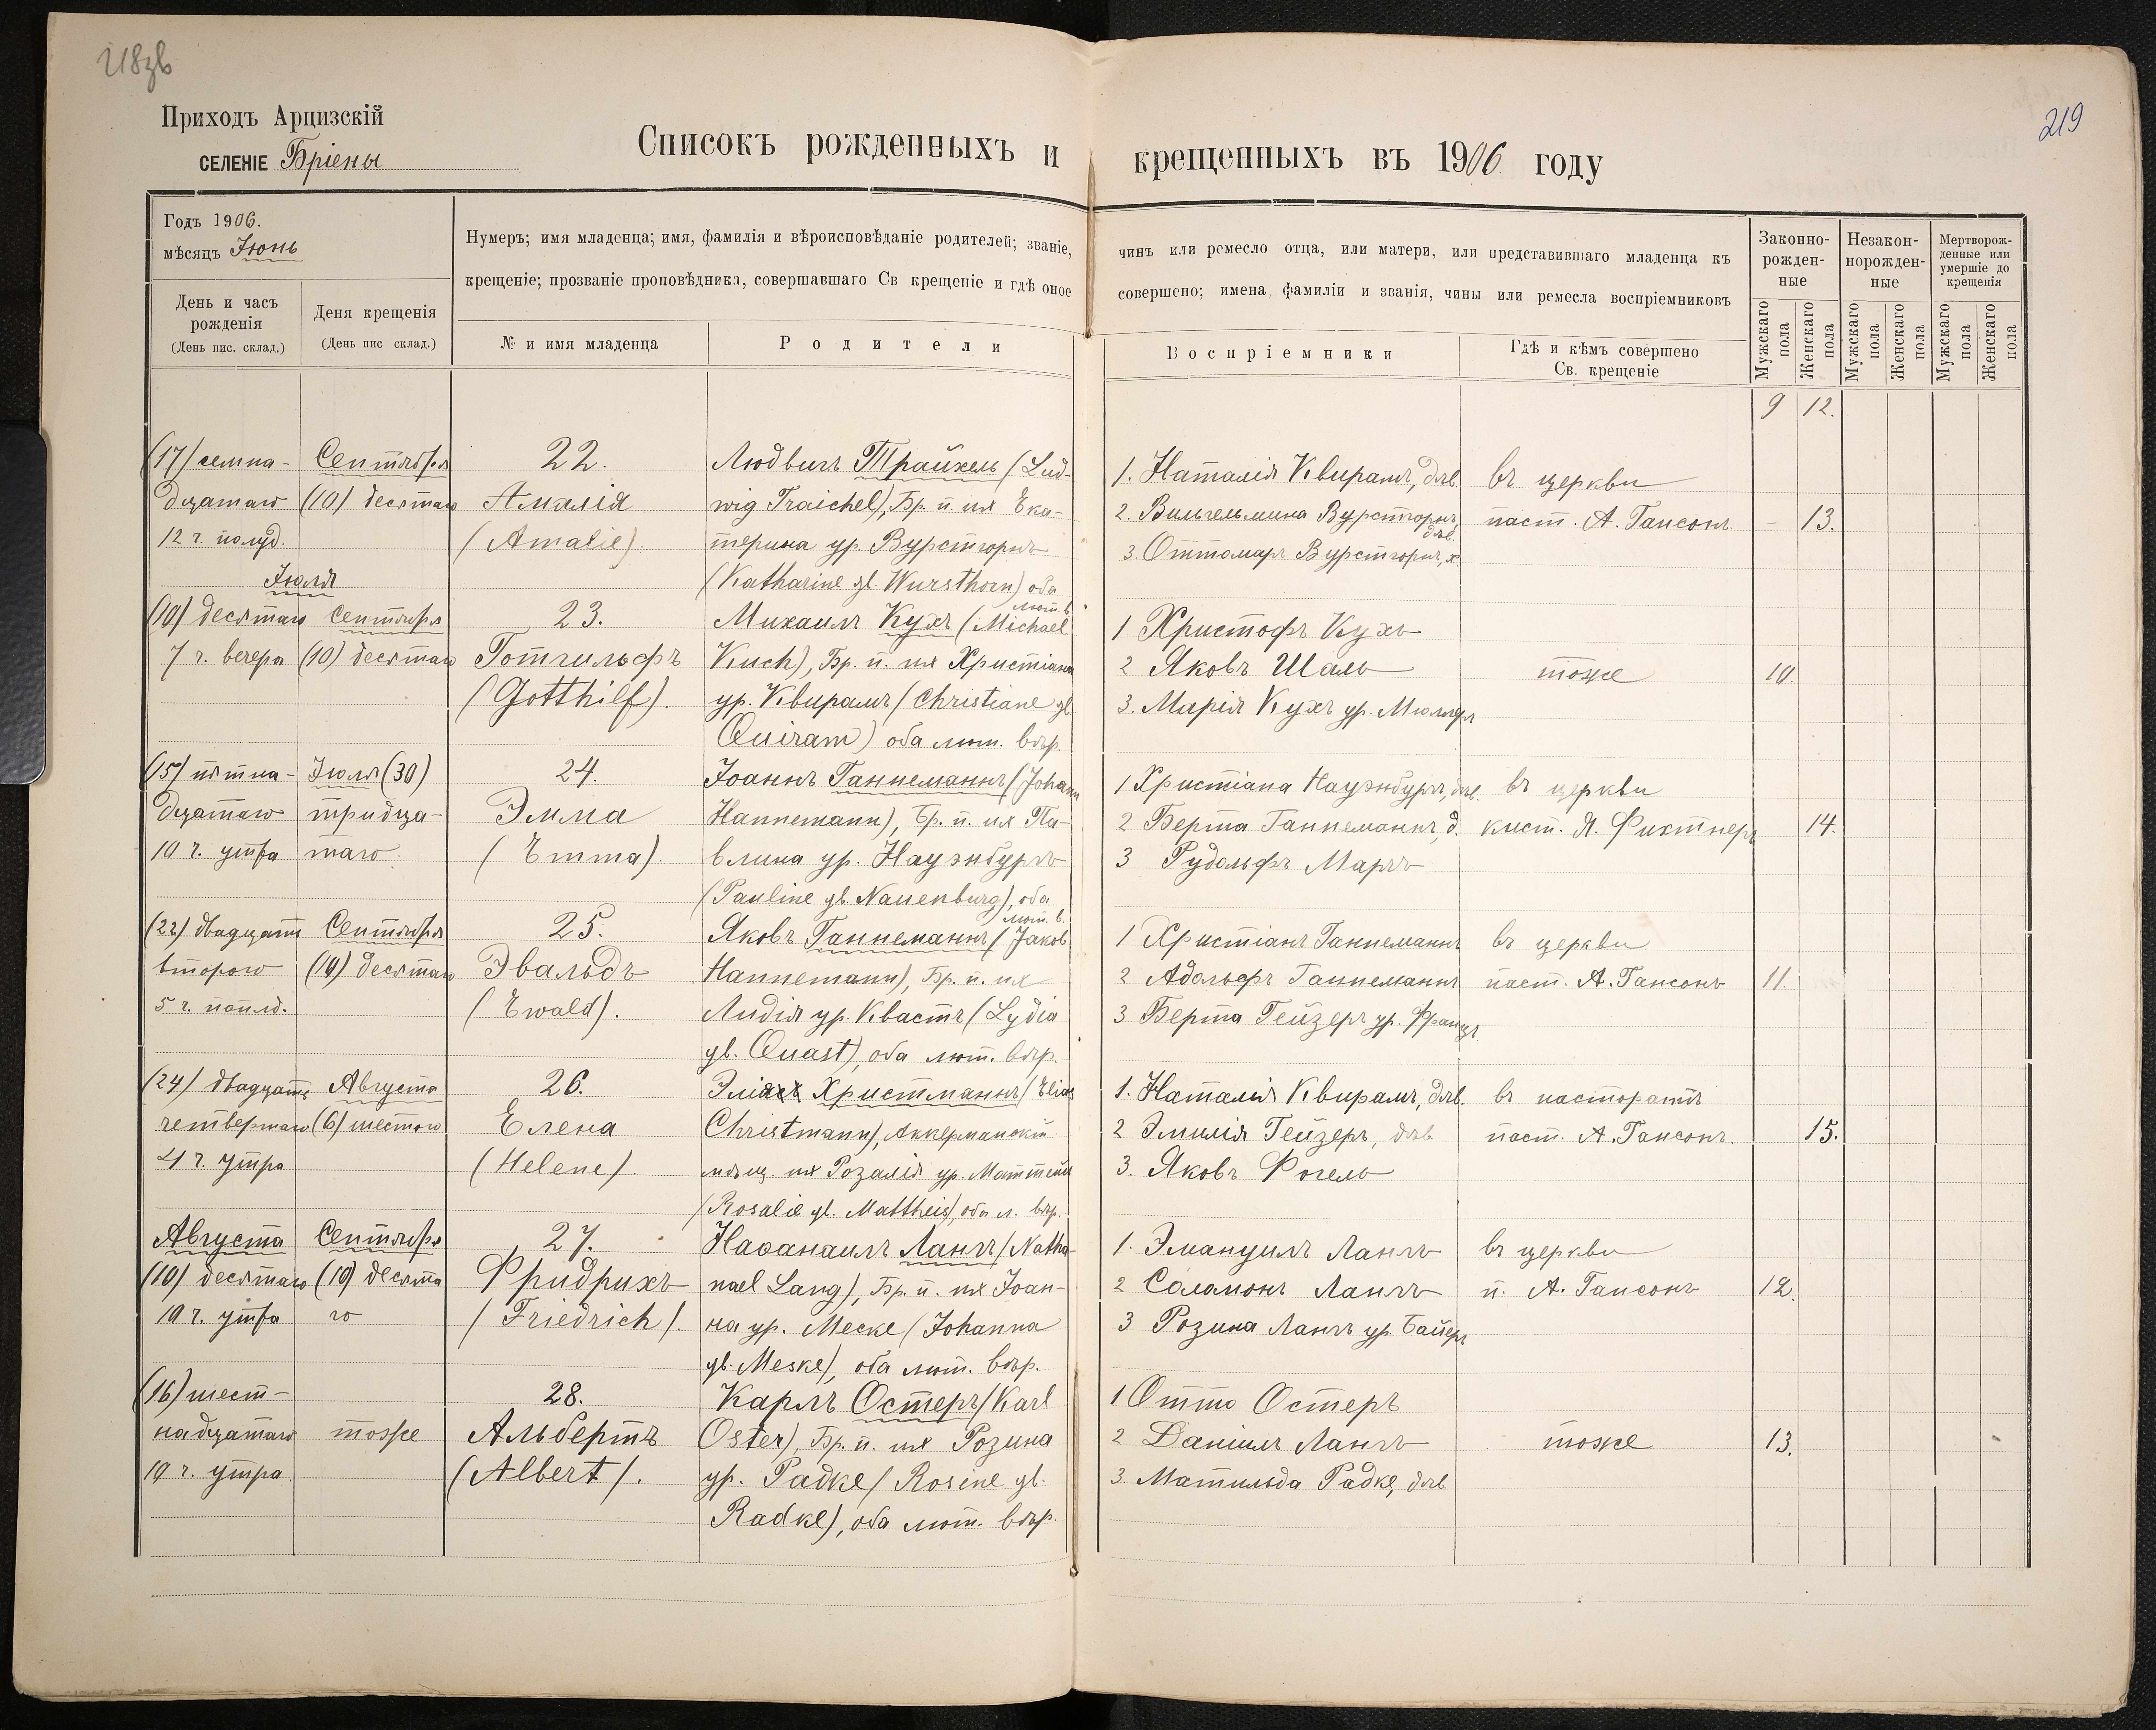 218зв
219
Приходъ Арцизскій
СЕЛЕНІЕ Бріены
Списокъ рожденныхъ и крещенныхъ въ 1906 году
Годъ 1906.
мѣсяцъ Іюнь
Нумеръ; имя младенца; имя, фамилія и вѣроисповѣданіе родителей; званіе, чинъ или ремесло отца, или матери, или представившаго младенца къ
крещеніе; прозваніе проповѣдника, совершавшаго Св крещеніе и гдѣ оное совершено; имена фамиліи и званія, чины или ремесла воспріемниковъ
Законно-
рожден-
ные
Незакон-
норожден-
ные
Мертворож-
денные или
умершіе до
крещенія
День и часъ
рожденія
(День пис. склад.)
Деня крещенія
(День пис склад.)
№ и имя младенца
Родители
Воспріемники
Гдѣ и кѣмъ совершено
Св. крещеніе
Мужскаго пола
Женскаго пола
Мужскаго пола
Женскаго пола
Мужскаго пола
Женскаго пола
9 12.
(17) семна- Сентября 22. Людвигъ Трайхель (Lud- 1. Наталія Квирамъ, дѣв. въ церкви
дцатаго (10) десятаго Амалія wig Traichel), Бр. п. их Ека- 2. Вильгельмина Вурстгорнъ, дѣв. паст. А. Гансонъ. - 13.
12 ч. полуд. (Amalie). терина ур. Вурстгорнъ 3. Оттомаръ Вурстгорнъ, х.
Іюля (Katharine gb. Wursthorn) оба лют. в.
(10) десятаго Сентября 23. Михаилъ Кухъ (Michael 1 Христофъ Кухъ
7 ч. вечера (10) десятаго Готгильфъ Kuch), Бр. п. их Христіана 2 Яковъ Шаль тоже 10.
(Gotthilf). ур. Квирамъ (Christiane gb. 3. Марія Кухъ ур. Мюллеръ
Quiram) оба лют. вѣр.
(15) пятна- Іюля (30) 24. Іоаннъ Ганнеманнъ (Johann 1 Христіана Науэнбургъ, дѣв. въ церкви
дцатаго тридца- Эмма Hannemann), Бр. п. их Па- 2 Берта Ганнеманнъ, д. кист. Я. Фихтнеръ 14.
10 ч. утра таго. (Emma). влина ур. Науэнбургъ 3 Рудольфъ Маргъ
(Pauline gb. Nauenburg), оба лют. в.
(22) двадцать Сентября 25. Яковъ Ганнеманнъ (Jakob 1 Христіанъ Ганнеманнъ въ церкви
второго (10) десятаго Эвальдъ Hannemann), Бр. п. их 2 Адольфъ Ганнеманнъ паст. А. Гансонъ 11.
5 ч. попл. (Ewald). Лидія ур. Квастъ (Lydia 3 Берта Гейзеръ ур. Францъ
gb. Quast), оба лют. вѣр.
(24) двадцать Августа 26. Христманнъ (Elias 1. Наталія Квирамъ, дѣв. въ пасторатѣ
четвертаго (6) шестого Елена Christmann), Аккерманскій 2 Эмилія Гейзеръ, дѣв. паст. А. Гансонъ. 15.
4 ч. утра (Helene). мѣщ. их Розалія ур. Маттейсъ 3. Яковъ Фогель
(Rosalie gb. Mattheis), оба л. вѣр.
Августа Сентября 27. Наѳанаилъ Лангъ (Natha- 1. Эмануилъ Лангъ въ церкви
(10) десятаго (10) десята Фридрихъ nael Lang), Бр. п. их Іоан- 2 Соломонъ Лангъ п. А. Гансонъ 12.
10 ч. утра го (Friedrich). на ур. Меске (Johanna 3 Розина Лангъ ур. Байеръ
gb. Meske), оба лют. вѣр.
(16) шест- 28. Карлъ Остеръ (Karl 1 Отто Остеръ
надцатаго тоже Альбертъ Oster), Бр. п. их Розина 2 Даніилъ Лангъ тоже 13.
10 ч. утра. (Albert). ур. Радке (Rosine gb. 3. Матильда Радке, дѣв
Radke), оба лют. вѣр.